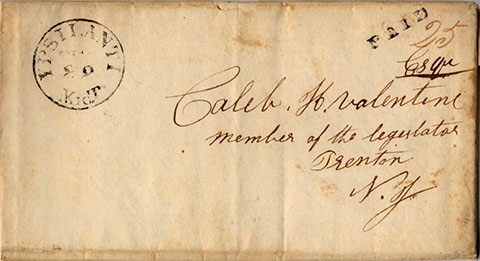 YPSILANTI
20
Mich.
PAID
25
Esqr
Caleb. H. Valentine
member of the legislator
Trenton
N. J.